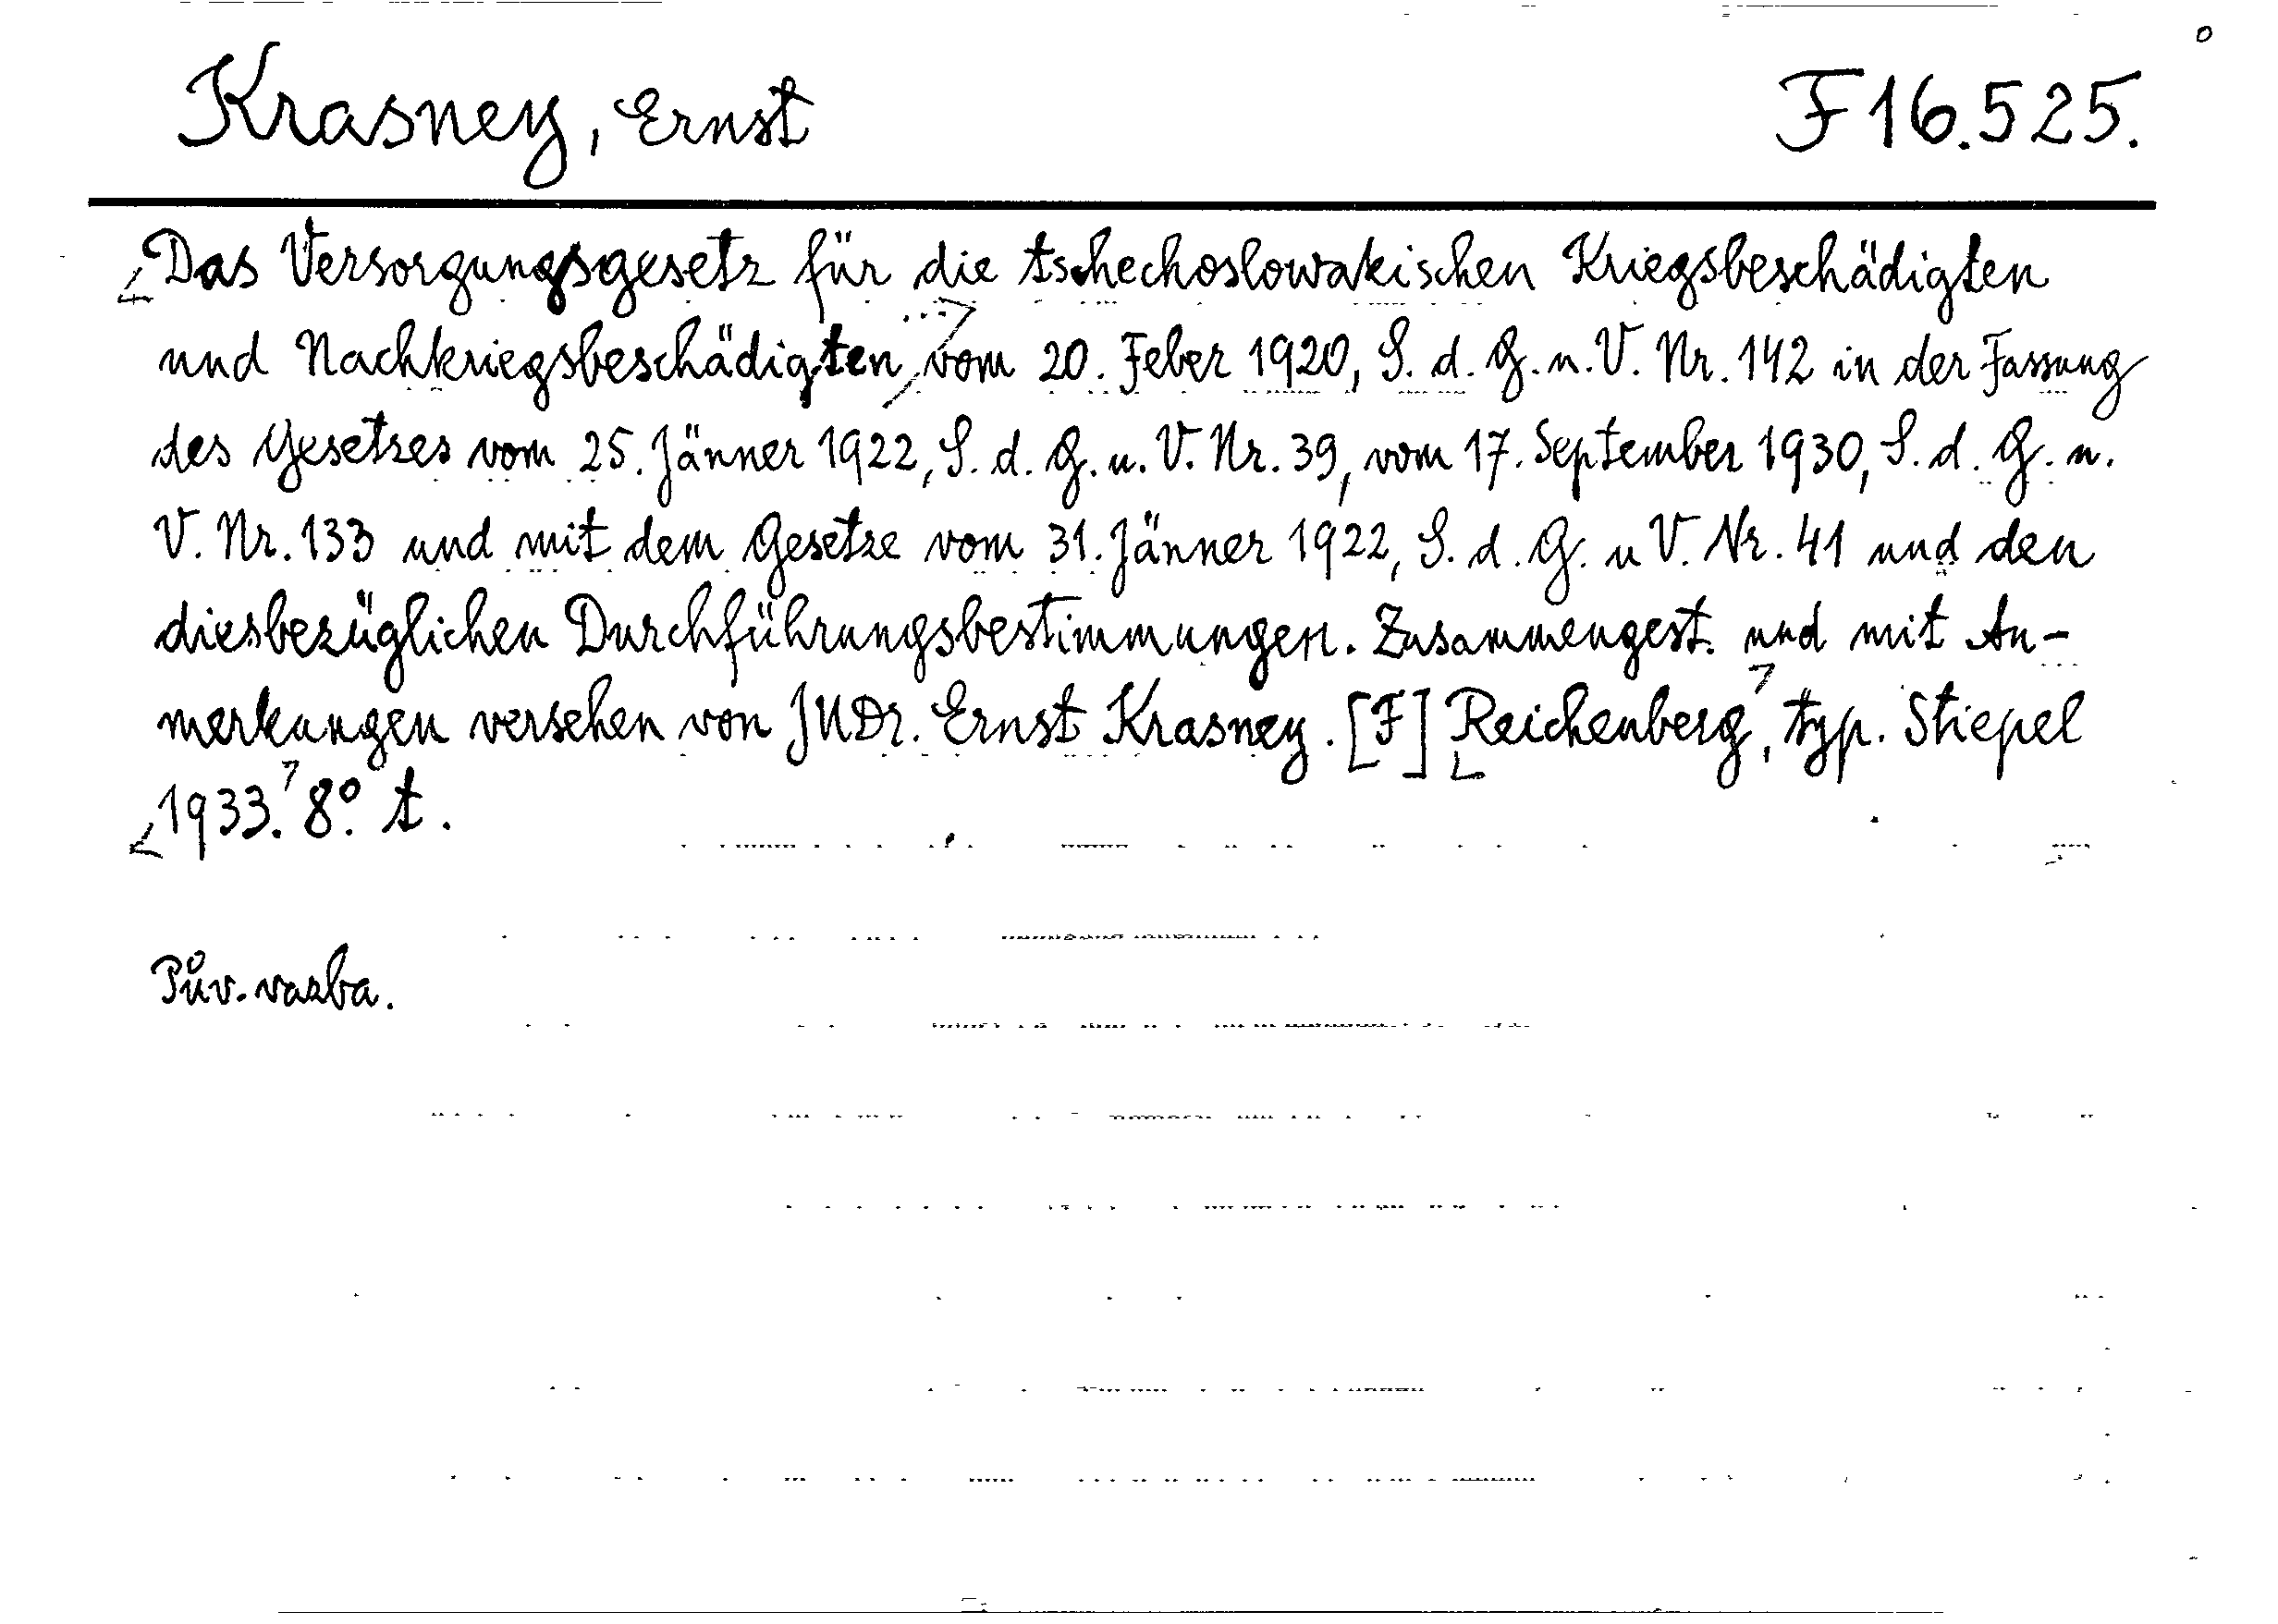 Krasney, Ernst F 16.525.
Das Versorgungsgesetz für die tschechoslowakischen Kriegsbeschädigten
und Nachkriegsbeschädigten, vom 20. Feber 1920, S. d. G. u. V. Nr. 142 in der Fassung
des Gesetzes vom 25. Jänner 1922, S. d. G. u. V. Nr. 39, vom 17. September 1930, S. d. G. u.
V. Nr. 133 und mit dem Gesetze vom 31. Jänner 1922, S. d. G. u V. Nr. 41 und den
diesbezüglichen Durchführungsbestimmungen. Zusammengest. und mit An-
merkungen versehen von JUDr. Ernst Krasney. [F] Reichenberg, typ. Stiepel
1933. 8°. t.
Pův. vazba.